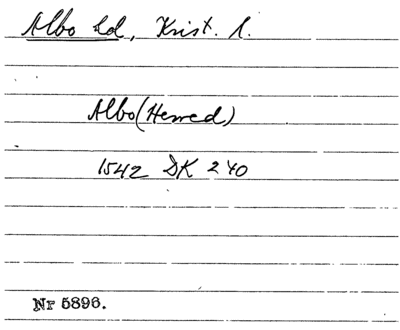 Albo hd, Krist. l.
Albo (Herred)
1542 DK 240
Nr 5896.